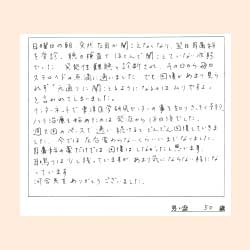 日曜日の朝 突然左耳が聞こえなくなり、翌日耳鼻科
を受診。聴力検査でほとんど聞こえていない状態
でした。突発性難聴と診断され、その日から毎日
ステロイドの点滴に通いました。でも回復があまり見ら
れず「元通りに聞こえるようになるのはムリですよ」と
言われてしまいました。
インターネットで東洋医学研究センターの事を知り、すぐに予約
ハリ治療を始めたのは発症から1ヶ月後でした。
週2回のペースで通い続けるとどんどん回復していき
ました。今では左右変わらないくらいまでなりました。
耳鼻科の薬だけでは回復はしなかったと思います。
耳鳴りは少し残っていますが あまり気にならない様にな
っています。
河合先生ありがとうございました。
男・女 50 歳